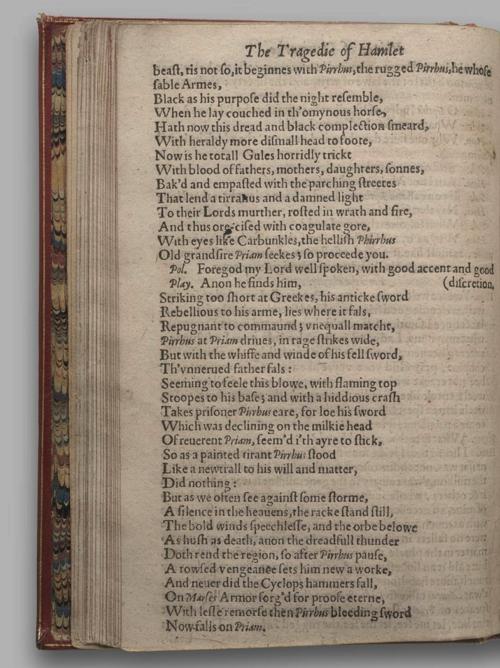 The Tragedie of Hamlet
beast, tis not so, it beginnes with Pirrhus, the rugged Pirrhus, he whose
sable Armes,
Black as his purpose did the night resemble,
When he lay couched in th'omynous horse,
Hath now this dread and black complection smeard,
With heraldy more dismall head to foote,
Now is he totall Gules horridly trickt
With blood of fathers, mothers, daughters, sonnes,
Bak'd and empasted with the parching streetes
That lend a tirranus and a damned light
To their Lords murther, rosted in wrath and fire,
And thus ore-cised with coagulate gore,
With eyes like Carbunkles, the hellish Phirrhus
Old grandsire Priam seekes; so proceede you.
Pol. Foregod my Lord well spoken, with good accent and good
Play. Anon he finds him, (discretion,
Striking too short at Greekes, his anticke sword
Rebellious to his arme, lies where it fals,
Repugnant to commaund; vnequall matcht,
Pirrhus at Priam driues, in rage strikes wide,
But with the whiffe and winde of his fell sword,
Th'vnnerued father fals:
Seeming to feele this blowe, with flaming top
Stoopes to his base; and with a hiddious crash
Takes prisoner Pirrhus eare, for loe his sword
Which was declining on the milkie head
Of reuerent Priam, seem'd i'th ayre to stick,
So as a painted tirant Pirrhus stood
Like a newtrall to his will and matter,
Did nothing:
But as we often see against some storme,
A silence in the heauens, the racke stand still,
The bold winds speechlesse, and the orbe belowe
As hush as death, anon the dreadfull thunder
Doth rend the region, so after Pirrhus pause,
A rowsed vengeance sets him new a worke,
And neuer did the Cyclops hammers fall,
On Marses Armor forg'd for proofe eterne,
With lesse remorse then Pirrhus bleeding sword
Now falls on Priam.